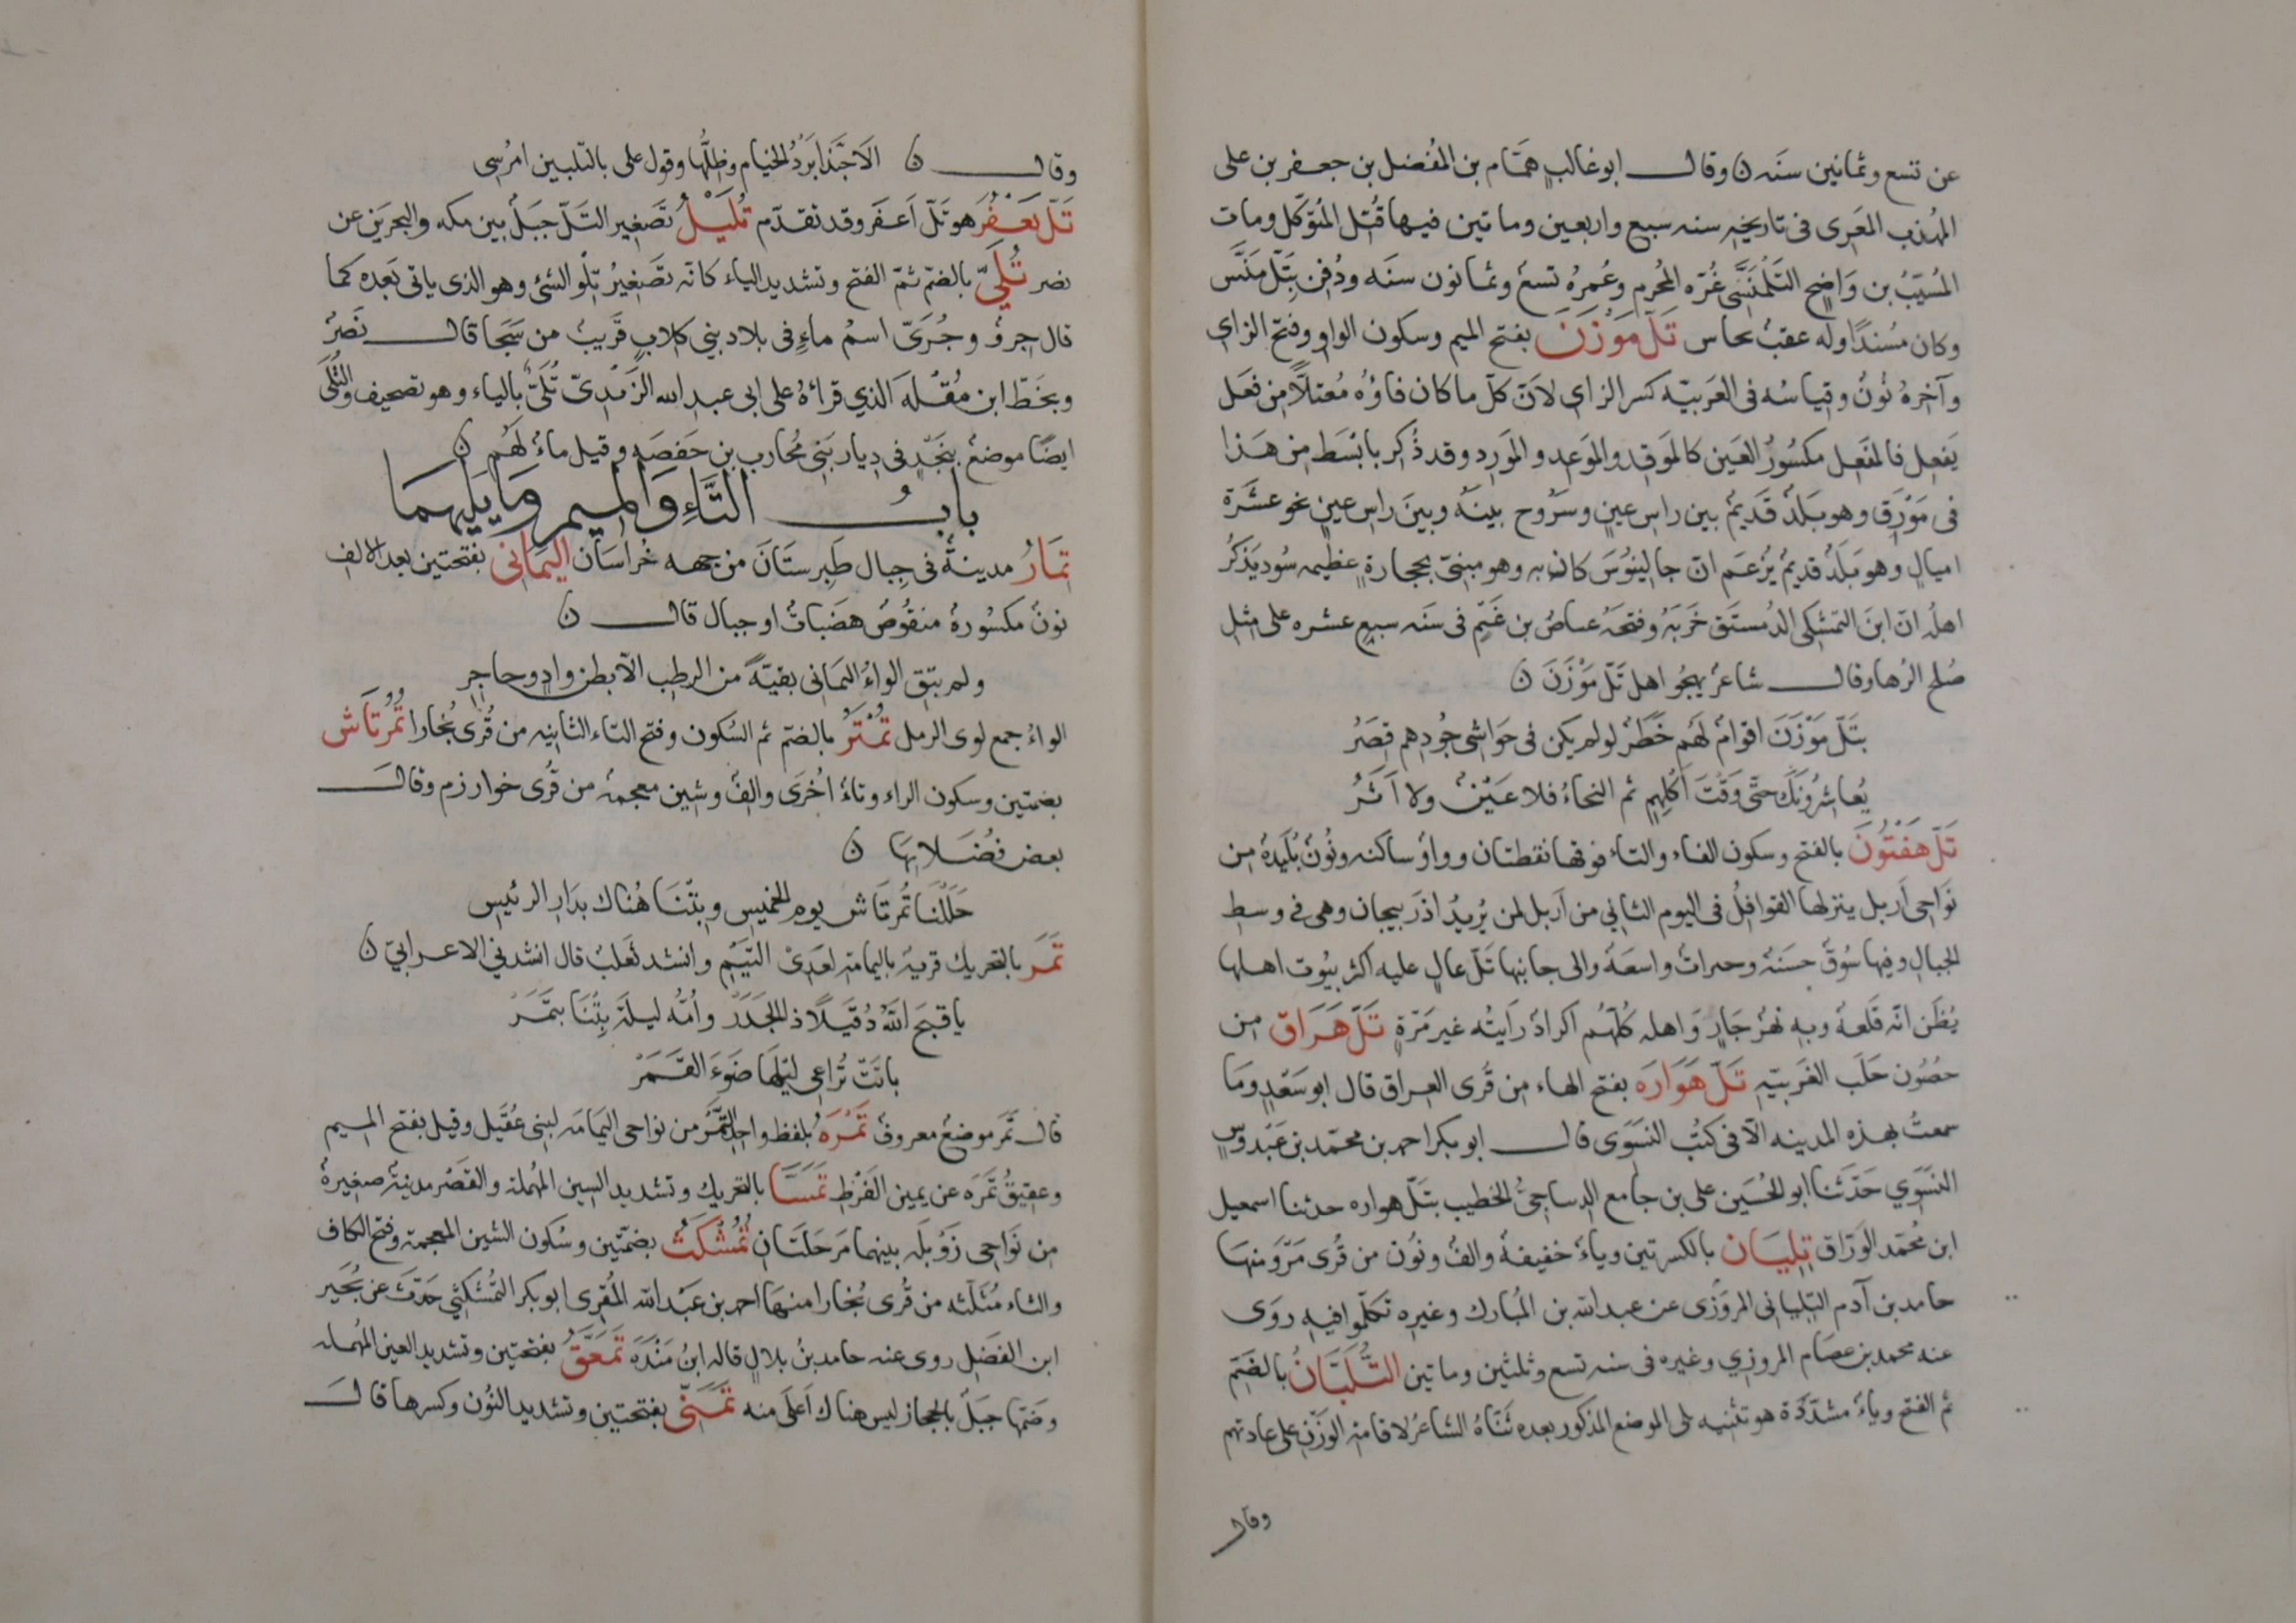 عن تسع وثمانين سنه ن وقال ابو غالب همّام بن المُفضل بن جعفر بن على
المهذب المعَرى فى تاريخه سنه سبع واربعين وماتين فيها قُتل المُتوَكّل ومات
المُسَيّبُ بن وَاضِح التَلْمَنَّسَّى غُرّه المحُرم وعُمرهُ تسعُ وثمانون سنَه ودُفِن بِتَلّ مَنَّس
وكان مُسْنداً وله عقبُ بحاس تَلّ مَوْزَنَ بفتح الميم وسكون الواو وفتح الزاى
وآخرهُ نُونُ وقياسُه فى العَربيّه كسر الزاى لانّ كلّ ما كان فاؤهُ مُعتلًّا مِن فعَل
يَفعِل فالمَفعِل مكسُورُ العَين كالمَوقِد والمَوعِد والمَورِد وقد ذُكر بابسَط مِن هَذا
فى مَوْرَق وهو بَلدُ قَديمُ بين راس عينٍ وسَرُوج بينَهُ وبينَ راس عينٍ نحو عشَرَة
اميالٍ وهو بَلَدُ قديمُ يزْعَم انّ جالِينُوسَ كان به وهو مبنىّ بحجارةٍ عظيمه سُود يَذكُرُ
اهلُه انّ ابنَ التمشكى الدُمستَق خَرَبَهُ وفتحَهُ عياضُ بن غَنمٍ فى سَنَه سبع عشره على مثل
صُلح الرُها وقال شاعرُ يهجُو اهل تَلّ مَوْزَنَ ن
بتَلّ مَوْزَنَ اقوامُ لَهُم خَطَرُ لو لم يكن فى حَواشى جُودهم قِصَرُ
يُعاشِرُونَكَ حتّى وَقْتَ اُكلِهم ثم النحاءُ فلا عَيْنُ ولا اَثَرُ
تَلّ هَفْتُونَ بالفتح وسكون الفاء والتاء فوقها نقطتان وواوُ ساكنه ونُونُ بُلَيدةُ مِن
نَوَاحى اَربل ينزلها القوافِلُ فى اليوم الثانى من اَربل لمن يُريدُ اذرَبيجان وهى فى وسط
الجبال وفيها سُوقُ حسَنهُ وحيراتُ واسعَهُ والى جانبها تَلّ عالٍ عليه اكثر بيُوت اهلها
يُظَن انّه قَلعهُ وبه نهرُ جَارٍ وَاهله كلّهُم اكرادُ رَايتُه غير مَرّةٍ تَلّ هَرَاق مِن
حصُون حَلَب الغَربيّهِ تَلّ هَوَارَه بفتح الهاء مِن قُرى العراق قال ابو سَعْدٍ ومَا
سمعتُ بهذه المدينه الّا فى كتُب النسَوَى قال ابو بكر احمد بن محمّد بن عَبْدوسٍ
النَسَوي حَدّثَنا ابو الحُسَين على بن جامع الدساجىُّ الخطيب بتَلّ هواره حدثنا اسمعيل
ابن محُمّد الوَرّاق تِلِيَان بالكسرتين وياءُ خفيفهُ والفُ ونُونُ من قُرى مَرْو منهَا
حامد بن آدم التِلِيانى المروَزى عن عبد الله بن المُبارك وغيره تكلّموا فيه روَى
عنه محمد بن عصَام المروزي وغيره فى سنه تسع وثلثين وماتين التُلَيَّانُ بالضَمّ
ثم الفتح وياءُ مشدّدَة هو تثنيه تلى الموضع المذكور بعده ثَنّاهُ الشاعرُ لاقامة الوَزْنِ على عادتهم
وقال
وقال ن الَا حَبَّذا بَرَدُ الخيام وظلُّها وقول على بالتليين امرُسِى
تَلّ يَعْفُرَ هو تَلّ اَعفَر وقد تقدّم تُلَيْلُ تصَغير التَلّ جبَلُ بين مكه والبحرَين عن
نصر تُلَيّ بالضمّ ثمّ الفتح وتشديد الياء كانّه تصَغيرُ تِلْو الشئ وهو الذى ياتى بَعده كما
قال جروُ وجُرَىّ اسمُ ماءٍ فى بلاد بني كلابٍ قَريبُ من سَجَا قال نَصرُ
وبخَطّ ابن مُقْلَه الذي قراَهُ على ابى عبد الله الزَمْدىّ تُلَىّ بالياء وهو تصحيف والتُلَى
ايضًا موضعُ بنجَدٍ فى دِيار بَنى محُارب بن خَصفَه وقيل ماءُ لَهُم ن
بابُ التَّاءِ وَالمِيمِ وَمَا يَلِيهِمَا
تَمارُ مدينةُ فى جِبال طَبَرِستَان من جهه خرُاسَان اليَمانى بفتحتين بعد الالف
نونُ مكسُورهُ منقُوصُ هضَباتُ او جبال قال ن
ولم يبق الواءُ اليمَانى بقيّةً من الرطب الّا بطن وادٍ وحاجِرِ
الواءُ جمع لوى الرمل تُمْتَرُ بالضم ثم السكون وفتح التاء الثانيه من قُرى بُخارا تُمُرتَاش
بضمتين وسكون الراء وتاءُ اُخْرَى والفُ وشين معجمهُ من قُرى خوارزم وقال
بعض فُضَلايهَا ن
حَلَلْنا تُمرتَاش يوم الخميِس وبِتْنَا هُناك بدَار الرئيس
تَمَر بالتحريك قريهُ باليمامة لعَدِىّ التيْم وانشد ثَعلبُ قال انشدني الاعرابىّ ن
يا قبحَ اللّهُ دُقَيلاً ذا الجَدَرْ واُمّهُ ليلَةَ بِتْنَا بتَمَرْ
باتَتْ تُراعى ليَلهَا ضَوءَ القَمَرْ
قال تَمَر موضعُ معروفُ تَمْرَهُ بلفظ واحدة التَمْر من نواحى اليَمَامَه لبنى عُقَيل وقيل بفتح الميم
وعقيقُ تَمَرَه عن يمين الفَرْط تَمَسَّا بالتحريك وتشديد السين المُهملة والقصَر مدينةُ صغيرهُ
من نوَاحى زَوُيلَه بينهما مَرحَلَتان تُمُشْكَثُ بضمّتين وسُكون الشين المعجمة وفتح الكاف
والثاء مُثلَّثه من قُرى بُخارا منهَا احمد بن عَبْد الله المُقرِى ابو بكر التُمُشكَثي حَدّثَ عن بُجَير
ابن الفَضل روى عنه حامد بنُ بلالٍ قاله ابنُ مَنْدَه تَمَعَّقُ بفتحتين وتشديد العين المُهمله
وضَمّها جبَلُ بالحجاز ليس هناك اَعلَى منه تَمَنّى بفتحتين وتشديد النُون وكسرها قال